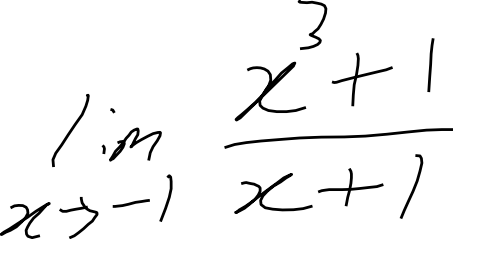 lim x→-1 (x^3+1)/(x+1)